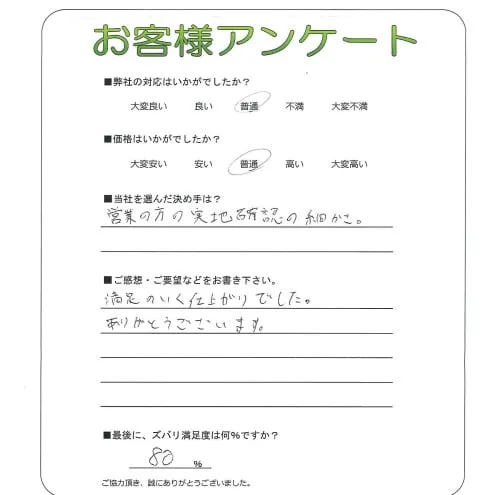 お客様アンケート
■弊社の対応はいかがでしたか？
大変良い 良い 普通 不満 大変不満
■価格はいかがでしたか？
大変安い 安い 普通 高い 大変高い
■当社を選んだ決め手は？
営業の方の実地確認の細かさ。
■ご感想・ご要望などをお書き下さい。
満足のいく仕上がりでした。
ありがとうございます。
■最後に、ズバリ満足度は何%ですか？
80 %
ご協力頂き、誠にありがとうございました。